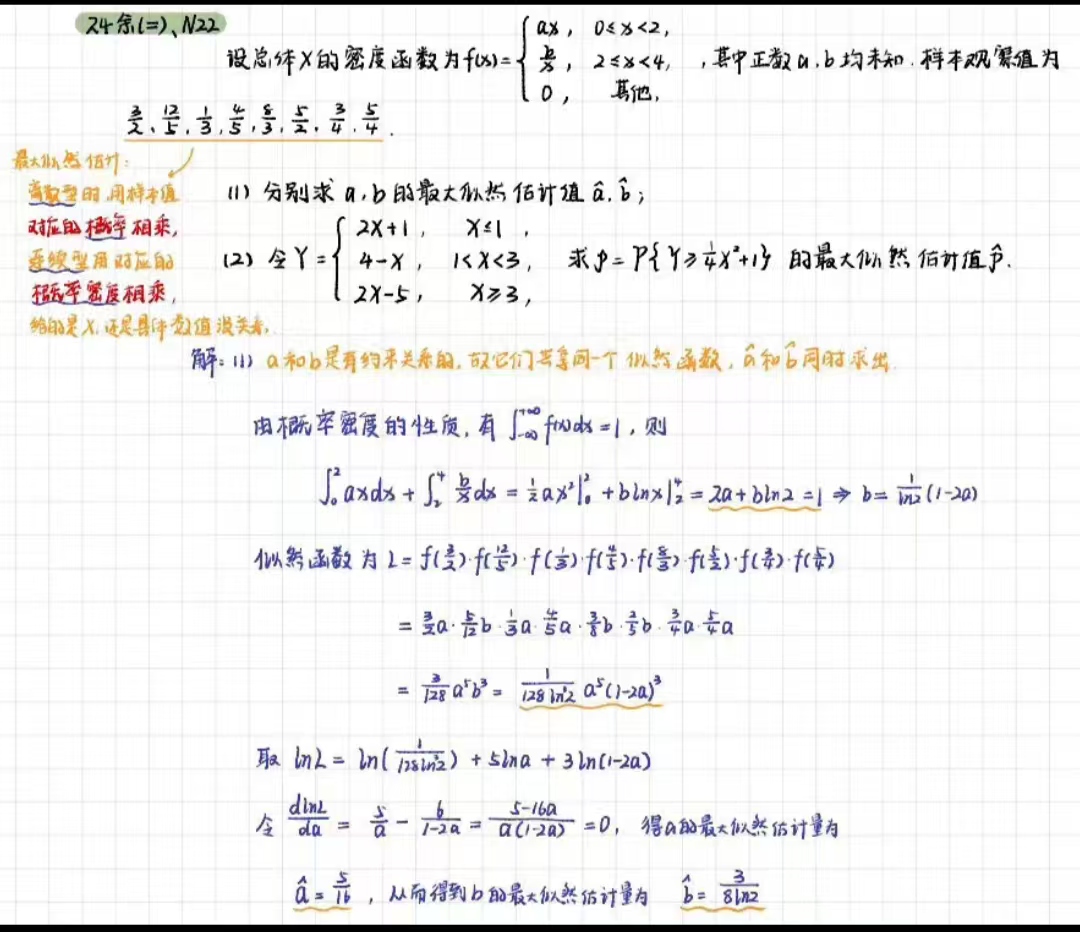 24余(二)、N22
设总体X的密度函数为f(x)={ax, 0≤x<2, b/x, 2≤x<4, 0, 其他, ,其中正数a,b均未知.样本观察值为
3/2、12/5、1/3、4/5、8/3、5/2、3/4、5/4.
最大似然估计:
离散型时,用样本值
对应的概率相乘,
连续型用对应的
概率密度相乘,
给的是X,还是具体数值没关系.
(1) 分别求a,b的最大似然估计值â,b̂;
(2) 令Y={2X+1, X≤1, 4-X, 1<X<3, 2X-5, X≥3, 求p=P{Y≥1/4X²+1}的最大似然估计值p̂.
解:(1) a和b是有约束关系的,故它们共享同一个似然函数,â和b̂同时求出.
由概率密度的性质,有∫_{-∞}^{+∞}f(x)dx=1,则
∫_0^2 axdx+∫_2^4 b/x dx=1/2ax²|_0^2+blnx|_2^4=2a+bln2=1⇒b=1/ln2(1-2a)
似然函数为L=f(3/2)·f(12/5)·f(1/3)·f(4/5)·f(8/3)·f(5/2)·f(3/4)·f(5/4)
=3/2a·5/12b·1/3a·4/5a·3/8b·2/5b·3/4a·5/4a
=3/128a⁵b³=1/128ln³2 a⁵(1-2a)³
取lnL=ln(1/128ln³2)+5lna+3ln(1-2a)
令dlnL/da=5/a-6/1-2a=5-16a/a(1-2a)=0,得a的最大似然估计量为
â=5/16,从而得到b的最大似然估计量为 b̂=3/8ln2